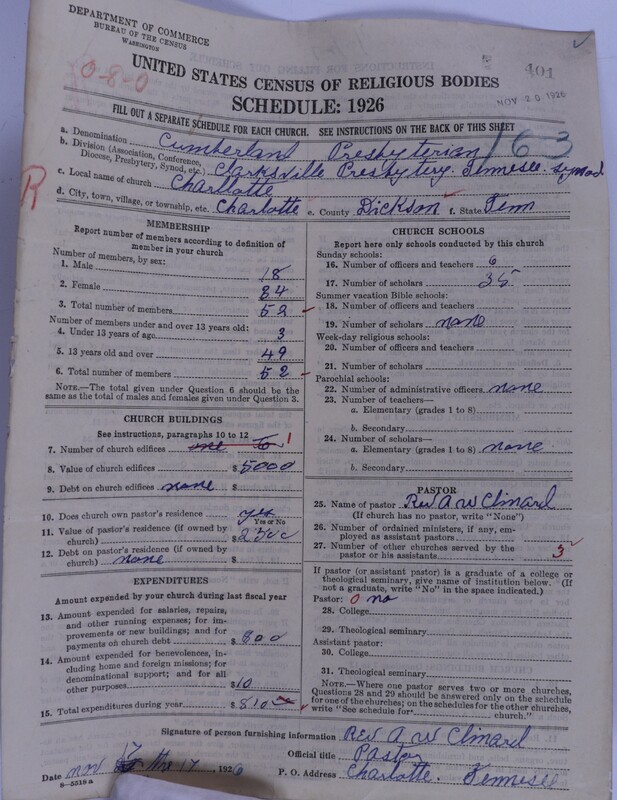 DEPARTMENT OF COMMERCE
BUREAU OF THE CENSUS
WASHINGTON
0-8-0
401
NOV 20 1926
UNITED STATES CENSUS OF RELIGIOUS BODIES
SCHEDULE: 1926
FILL OUT A SEPARATE SCHEDULE FOR EACH CHURCH. SEE INSTRUCTIONS ON THE BACK OF THIS SHEET
163
a. Denomination Cumberland Presbyterian
b. Division (Association, Conference, Diocese, Presbytery, Synod, etc.) Clarksville Presbytery. Tennesee. Synod
R
c. Local name of church Charlotte
d. City, town, village, or township, etc. Charlotte e. County Dickson f. State Tenn
MEMBERSHIP
Report number of members according to definition of
member in your church
Number of members, by sex:
1. Male 18
2. Female 34
3. Total number of members 52
Number of members under and over 13 years old:
4. Under 13 years of age 3
5. 13 years old and over 49
6. Total number of members 52
NOTE.—The total given under Question 6 should be
same as the total of males and females given under Question 3.
CHURCH BUILDINGS
See instructions, paragraphs 10 to 12
7. Number of church edifices one 1
8. Value of church edifices $5000
9. Debt on church edifices none $
10. Does church own pastor's residence yes
Yes or No
11. Value of pastor's residence (if owned by
church) $2500
12. Debt on pastor's residence (if owned by
church) none $
EXPENDITURES
Amount expended by your church during last fiscal year
13. Amount expended for salaries, repairs,
and other running expenses; for im-
provements or new buildings; and for
payments on church debt $800
14. Amount expended for benevolences, in-
cluding home and foreign missions; for
denominational support; and for all
other purposes $10
15. Total expenditures during year $810
CHURCH SCHOOLS
Report here only schools conducted by this church
Sunday schools:
16. Number of officers and teachers 6
17. Number of scholars 35
Summer vacation Bible schools:
18. Number of officers and teachers
19. Number of scholars none
Week-day religious schools:
20. Number of officers and teachers
21. Number of scholars
Parochial schools:
22. Number of administrative officers none
23. Number of teachers—
a. Elementary (grades 1 to 8)
b. Secondary
24. Number of scholars—
a. Elementary (grades 1 to 8) none
b. Secondary
PASTOR
25. Name of pastor Rev A W Climard
(If church has no pastor, write "None")
26. Number of ordained ministers, if any, em-
ployed as assistant pastors
27. Number of other churches served by the
pastor or his assistants 3
If pastor (or assistant pastor) is a graduate of a college or
theological seminary, give name of institution below. (If
not a graduate, write "No" in the space indicated.)
Pastor: 0 no
28. College
29. Theological seminary
Assistant pastor:
30. College
31. Theological seminary
NOTE.—Where one pastor serves two or more churches,
Questions 28 and 29 should be answered only on the schedule
for one of the churches; on the schedules for the other churches,
write "See schedule for church."
Signature of person furnishing information Rev A W Climard
Official title Pastor
Date nov the 17, 1926
P. O. Address Charlotte. Tennesee
8-5518 a